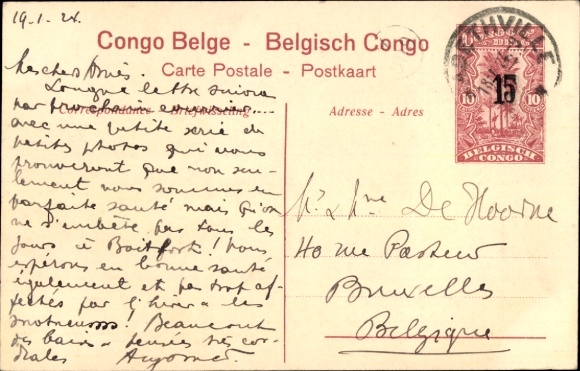 19.1.24.
Congo Belge - Belgisch Congo
Carte Postale - Postkaart
Correspondance - Briefwisseling
Adresse - Adres
Mes chers Amis.
Longue lettre suivra
par prochain courrier....
avec une petite série de
petites photos qui vous
prouveront que non seu-
lement nous sommes en
parfaite santé mais qu'on
ne s'embête pas tous les
jours à Boitsfort! Vous
espérons en bonne santé
également et pas trop af-
fectés par l'hiver & les
Beaucoup
de pensées très cor-
diales
15
10 10
BELGISCH
CONGO
Mr & Mme De Hoorne
40 rue Pasteur
Bruxelles
Belgique